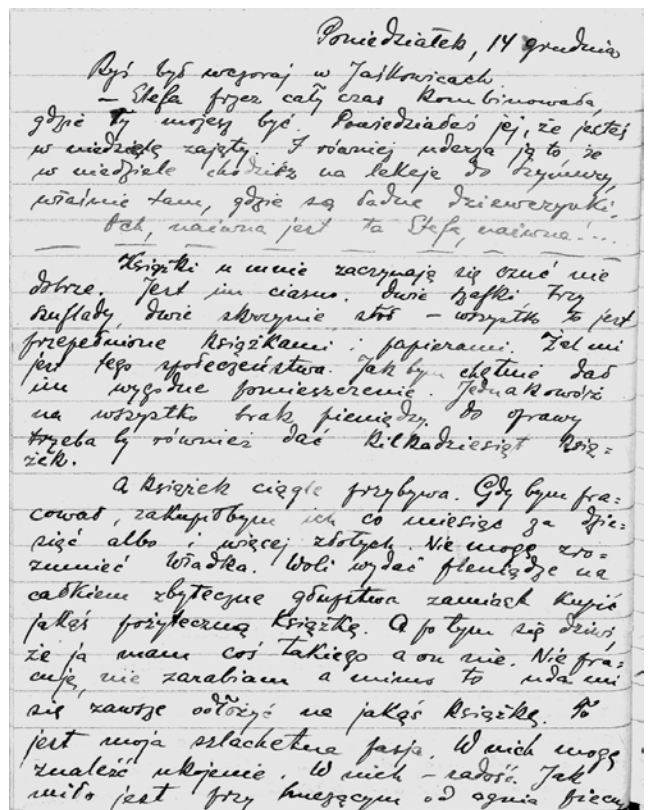 Poniedziałek, 14 grudnia
Ryś był wczoraj w Jaśkowicach
– Stefa przez cały czas kombinowała,
gdzie Ty możesz być. Powiedziałeś jej, że jesteś
w niedzielę zajęty. I również uderza ją to że
w niedziele chodzisz na lekcje do Szymury,
właśnie tam, gdzie są ładne dziewczynki.
Och, naiwna jest ta Stefa, naiwna!...
Książki u mnie zaczynają się czuć nie
dobrze. Jest im ciasno. Dwie szafki trzy
szuflady, dwie skrzynie stół – wszystko to jest
przepełnione książkami i papierami. Żal mi
jest tego społeczeństwa. Jak bym chętnie dał
im wygodne pomieszczenie. Jednakowóż
na wszystko brak pieniędzy. Do oprawy
trzeba by również dać kilkadziesiąt ksią=
żek.
A książek ciągle przybywa. Gdy bym pra=
cował, zakupiłbym ich co miesiąc za dzie=
sięć albo i więcej złotych. Nie mogę zro=
zumieć Władka. Woli wydać pieniądze na
całkiem zbyteczne głupstwa zamiast kupić
jakąś pożyteczną książkę. A po tym się dziwi,
że ja mam coś takiego a on nie. Nie pra=
cuję, nie zarabiam a mimo to uda mi
się zawsze odłożyć na jakąś książkę. To
jest moja szlachetna pasja. W nich mogę
znaleźć ukojenie. W nich – radość. Jak
miło jest przy huczącym od ognia piecu